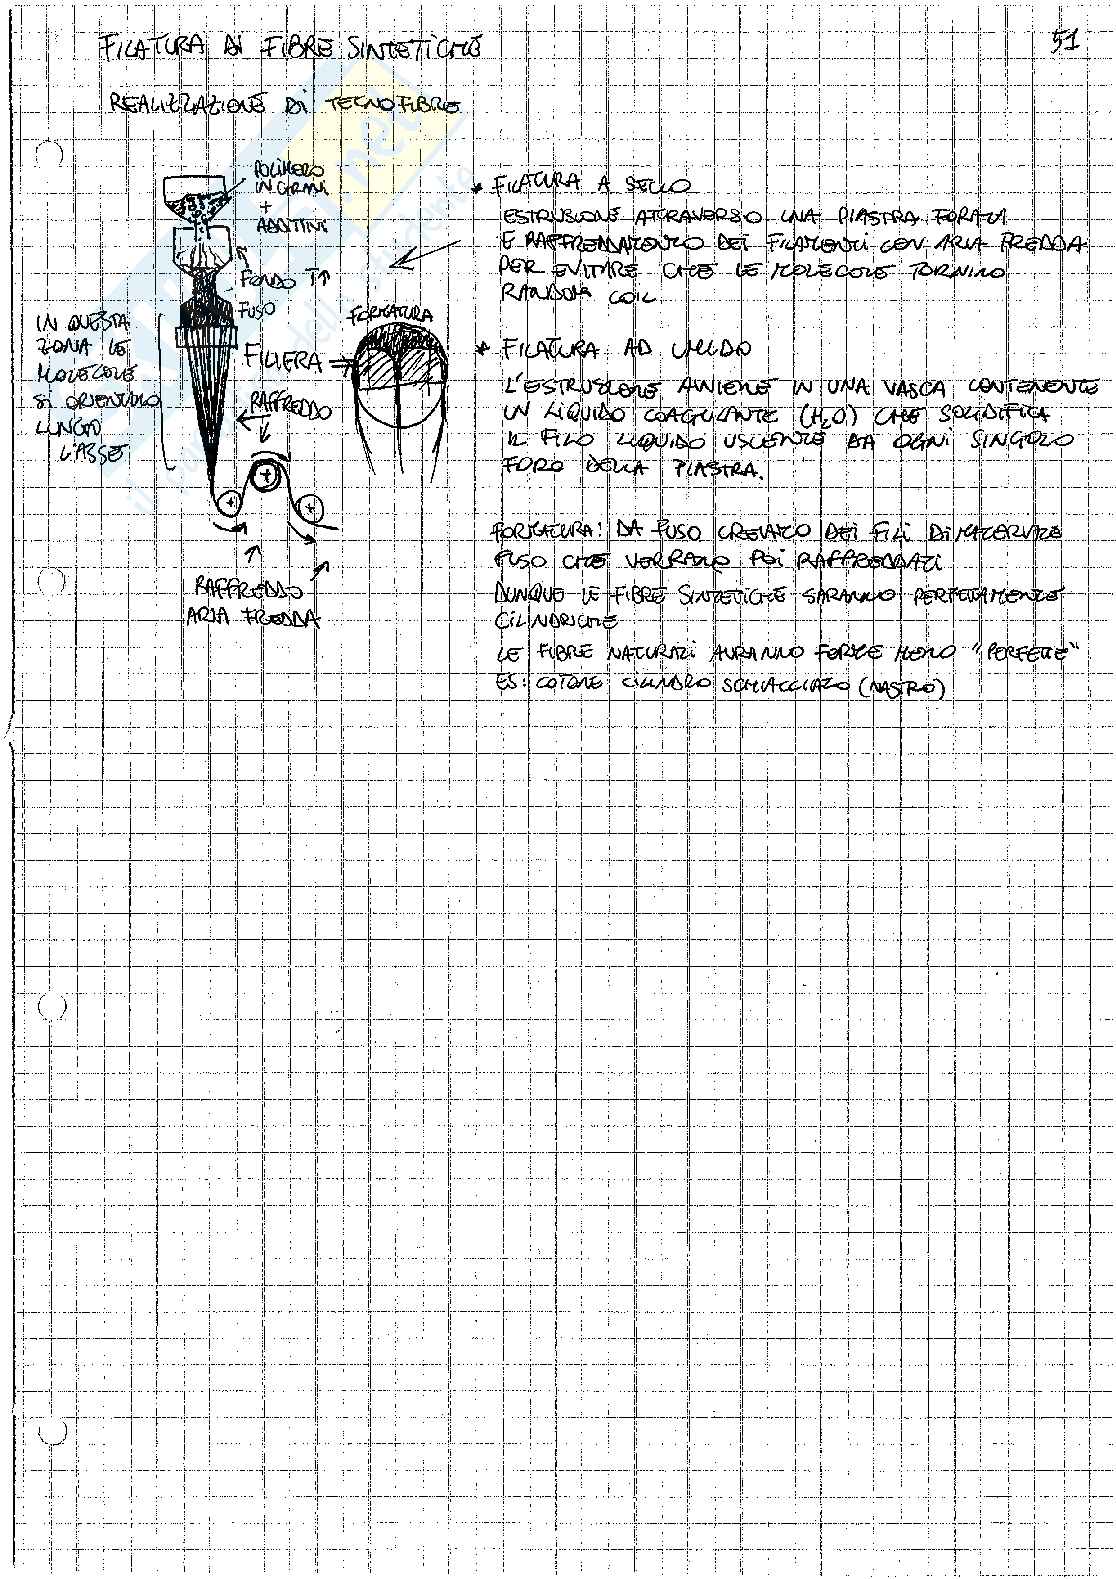 FILATURA DI FIBRE SINTETICHE
51
REALIZZAZIONE DI TECNOFIBRE
POLIMERO
IN GRANI
+
ADDITIVI
FONDO T↑
FUSO
IN QUESTA
ZONA LE
MOLECOLE
SI ORIENTANO
LUNGO
L'ASSE
FORGATURA
FILIERA
RAFFREDDO
RAFFREDDO
ARIA FREDDA
* FILATURA A SECCO
ESTRUSIONE ATTRAVERSO UNA PIASTRA FORATA
E RAFFREDDAMENTO DEI FILAMENTI CON ARIA FREDDA
PER EVITARE CHE LE MOLECOLE TORNINO
RANDOM COIL
* FILATURA AD UMIDO
L'ESTRUSIONE AVVIENE IN UNA VASCA CONTENENTE
UN LIQUIDO COAGULANTE (H2O) CHE SOLIDIFICA
IL FILO LIQUIDO USCENTE DA OGNI SINGOLO
FORO DELLA PIASTRA.
FORGATURA: DA FUSO CREIAMO DEI FILI DI MATERIALE
FUSO CHE VERRANO POI RAFFREDDATI
DUNQUE LE FIBRE SINTETICHE SARANNO PERFETTAMENTE
CILINDRICHE
LE FIBRE NATURALI AVRANNO FORME MENO "PERFETTE"
ES: COTONE CILINDRO SCHIACCIATO (NASTRO)